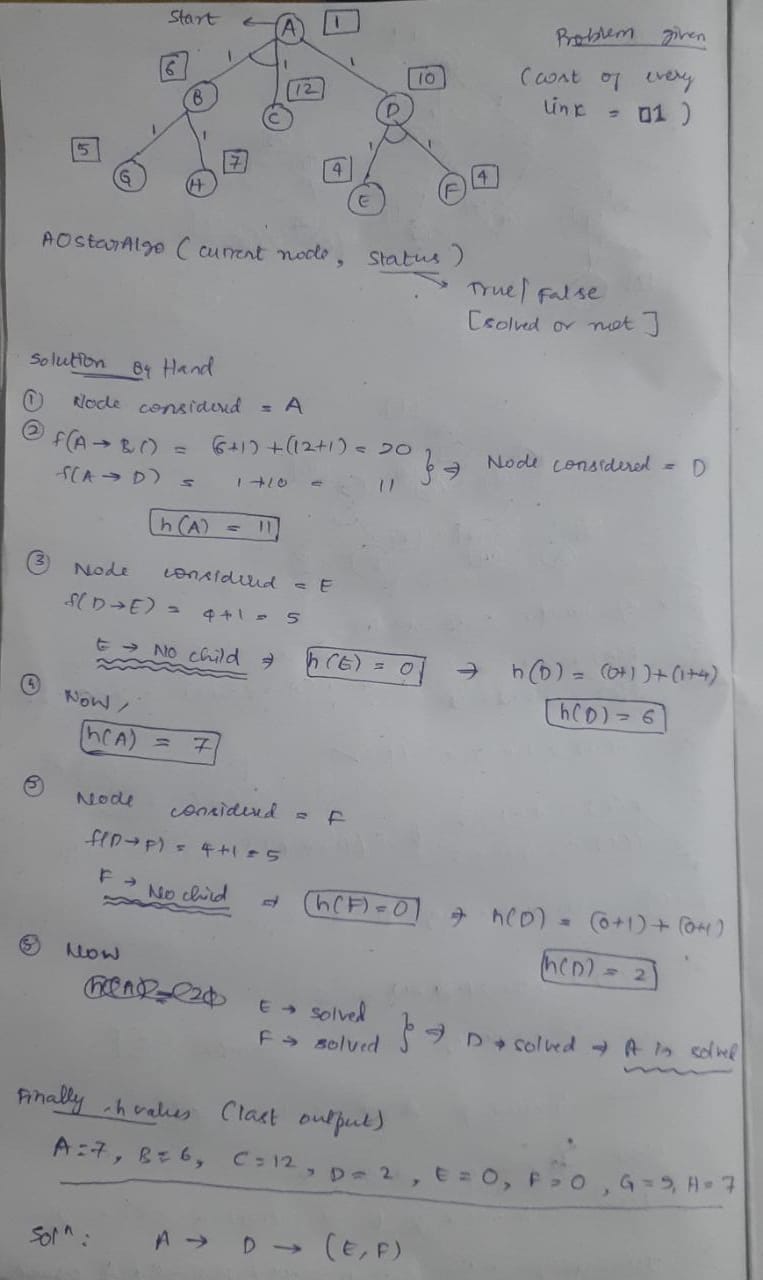 Start ← A 1
Problem given
(cost of every
link = 01)
6 1 1 1 10
B 12 C D
1 1 1 1
5 G H 7 4 E F 4
AOstarAlgo (current node, status)
→ True/False
[solved or not]
Solution By Hand
① Node considered = A
② f(A → BC) = (6+1)+(12+1) = 20
f(A → D) = 1+10 = 11 } ⇒ Node considered = D
h(A) = 11
③ Node considered = E
f(D→E) = 4+1 = 5
E → No child ⇒ h(E) = 0 → h(D) = (0+1)+(1+4)
h(D) = 6
④ Now,
h(A) = 7
⑤ Node considered = F
f(D→F) = 4+1 = 5
F → No child ⇒ h(F)=0 ⇒ h(D) = (0+1)+(0+1)
h(D) = 2
⑤ Now
E → solved
F → solved } ⇒ D → solved → A is solved
Finally h values (last output)
A=7, B=6, C=12, D=2, E=0, F=0, G=5, H=7
Solⁿ: A → D → (E,F)